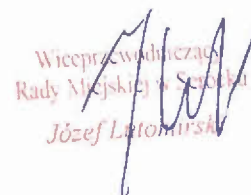 Wiceprzewodniczący
Rady Miejskiej w Serocku
Józef Lutomirski